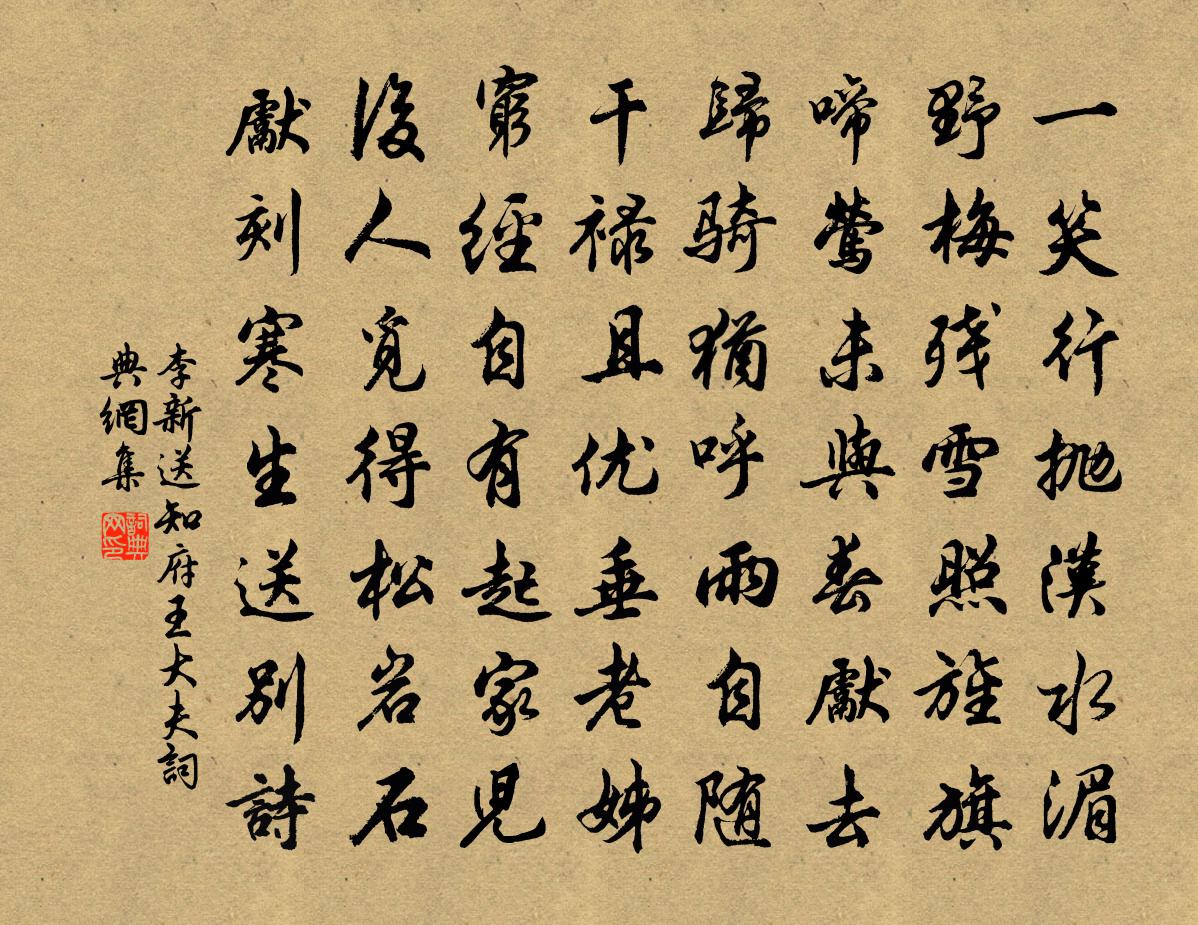 一笑行抛漢水湄
野梅残雪照旌旗
啼鶯未與春獻去
歸騎猶呼雨自随
干禄且优垂老姊
窮經自有起家兒
後人覓得松岩石
獻刻寒生送別詩
李新送知府王大夫詞
典網集
詞典
网印